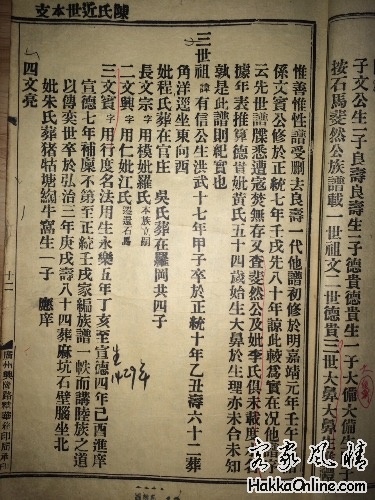 陳氏近世本支
子文公生二子良壽良壽生二子德貴德貴生一子大傭大傭生
按石馬斐然公族譜載一世祖文二世德貴三世大鼻大鼻
惟善惟性譜受刪去良壽一代他譜初修於明嘉靖元年壬午
係文賓公修於正統七年壬戌先八十年諒此較為實在况他譜
云先世譜牒悉遭寇焚無存又查斐然公及妣李氏俱未載庚
據年表推算德貴妣黃氏五十四歲始生大鼻於生理亦未合未知
孰是此譜則紀實也
三世祖諱有信公生洪武十七年甲子卒於正統十年乙丑壽六十二葬
角洋逕坐東向西
妣程氏葬在官庄 吳氏葬在羅岡共四子
長文宗字用模妣羅氏本族立嗣
二文興字用仁妣江氏遷居石馬
三文賓字用行度名法用生永樂五年丁亥至宣德四年己酉進庠
生1429年
宣德七年補廩不第至正統壬戌家編族譜一帙而講睦族之道
以傳奕世卒於弘治三年庚戌壽八十四葬麻坑石壁腦坐北
妣朱氏葬猪牯塘牛窩生一子 應庠
四文亮
十二
廣州興隆路華印局承印
客家風情
HakkaOnline.com